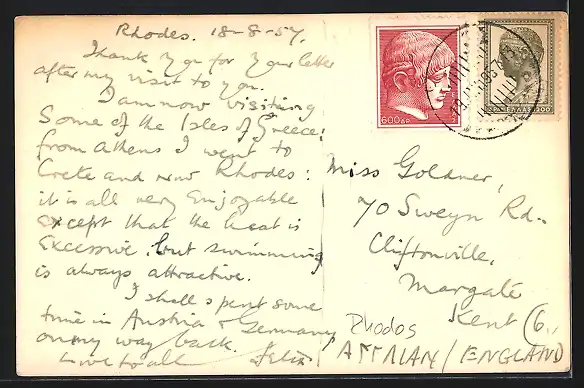 Rhodes. 18-8-57.
Thank you for your letter
after my visit to you.
I am now visiting
Some of the Isles of Greece:
from Athens I went to
Crete and now Rhodes:
it is all very Enjoyable
except that the heat is
Excessive, but swimming
is always attractive.
I shall spent some
time in Austria & Germany
on my way back.
Love to all Felix
Miss Goldner,
70 Sweyn Rd.
Cliftonville,
Margate
Kent
Rhodos
ΑΓΓΛΙΑΝ / ENGLAND
600 ΔΡ.
ΕΛΛΑΣ